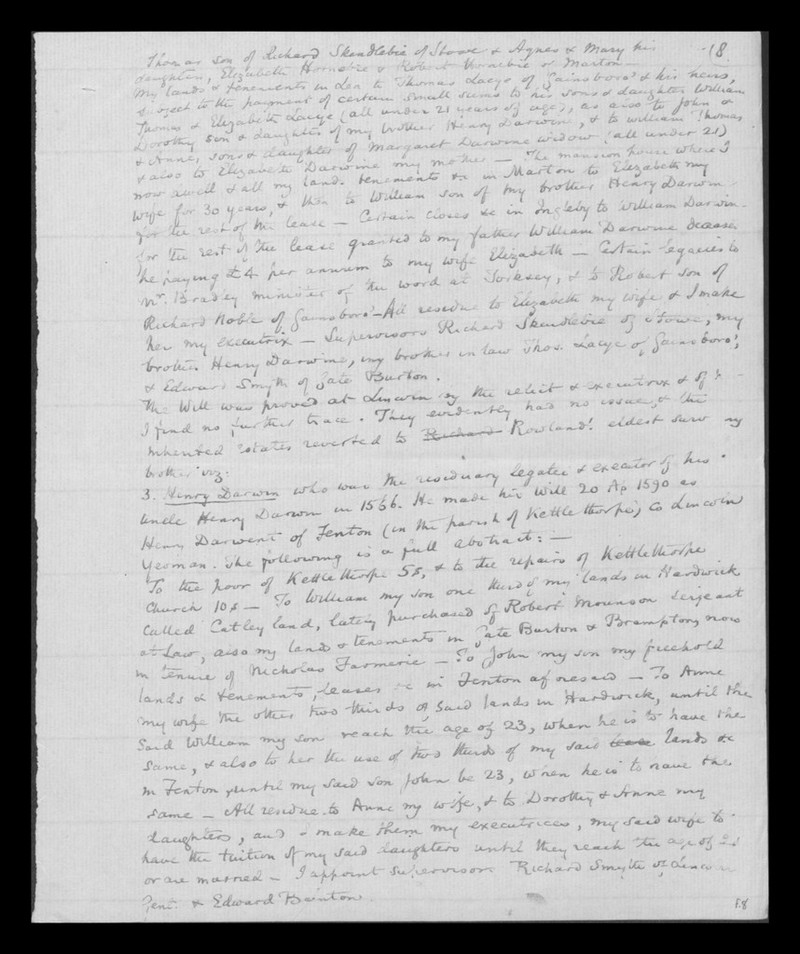 18
Thomas son of Richard Skendlebie of Stowe & Agnes & Mary his
daughters, Elizabeth Hornebie & Robert Hornebie of Marton —
My lands & tenements in Lea to Thomas Lacye of Gainsboro' & his heirs,
subject to the payment of certain small sums to his sons & daughter William
Thomas & Elizabeth Lacye (all under 21 years of age), as also to John &
Dorothy son & daughter of my brother Henry Darwine, & to William Thomas
& Anne, sons & daughter of Margaret Darwine widow (all under 21)
& also to Elizabeth Darwine my mother — The mansion house where I
now dwell & all my land. tenements &c in Marton to Elizabeth my
wife for 30 years, & then to William son of my brother Henry Darwin
for the rest of the lease — Certain closes &c in Ingleby to William Darwin
for the rest of the lease granted to my father William Darwine deceased
he paying £4 per annum to my wife Elizabeth — Certain legacies to
Mr. Bradley minister of the word at Torksey, & to Robert son of
Richard Noble of Gainsboro' — All residue to Elizabeth my wife & I make
her my executrix — Supervisors Richard Skendlebie of Stowe, my
brother Henry Darwine, my brother in law Thos. Lacye of Gainsboro',
& Edward Smyth of Gate Burton.
The Will was proved at Lincoln by the relict & executrix & of
I find no further trace. They evidently had no issue, & the
inherited estates reverted to Richard Rowland! eldest surv ng
brother viz.
3. Henry Darwin who was the residuary legatee & executor of his
uncle Henry Darwin in 1566. He made his Will 20 Ap 1590 as
Henry Darwent of Fenton (in the parish of Kettlethorpe) Co Lincoln
Yeoman. The following is a full abstract: —
To the poor of Kettlethorpe 5s, & to the repairs of Kettlethorpe
Church 10s — To William my son one third of my lands in Hardwick
called Catley land, lately purchased of Robert Mounson Serjeant
at Law, also my land & tenements in Gate Burton & Brampton, now
in tenure of Nicholas Farmerie — To John my son my freehold
lands & tenements, leases &c in Fenton aforesaid — To Anne
my wife the other two thirds of said lands in Hardwick, until the
said William my son reach the age of 23, when he is to have the
same, & also to her the use of two thirds of my said lease lands &c
in Fenton, until my said son John be 23, when he is to have the
same — All residue to Anne my wife, & to Dorothy & Anne my
daughters, and I make them my executrices, my said wife to
have the tuition of my said daughters until they reach the age of 21
or are married — I appoint supervisors Richard Smyth of Lincoln
Gent. & Edward Bainton
f.8